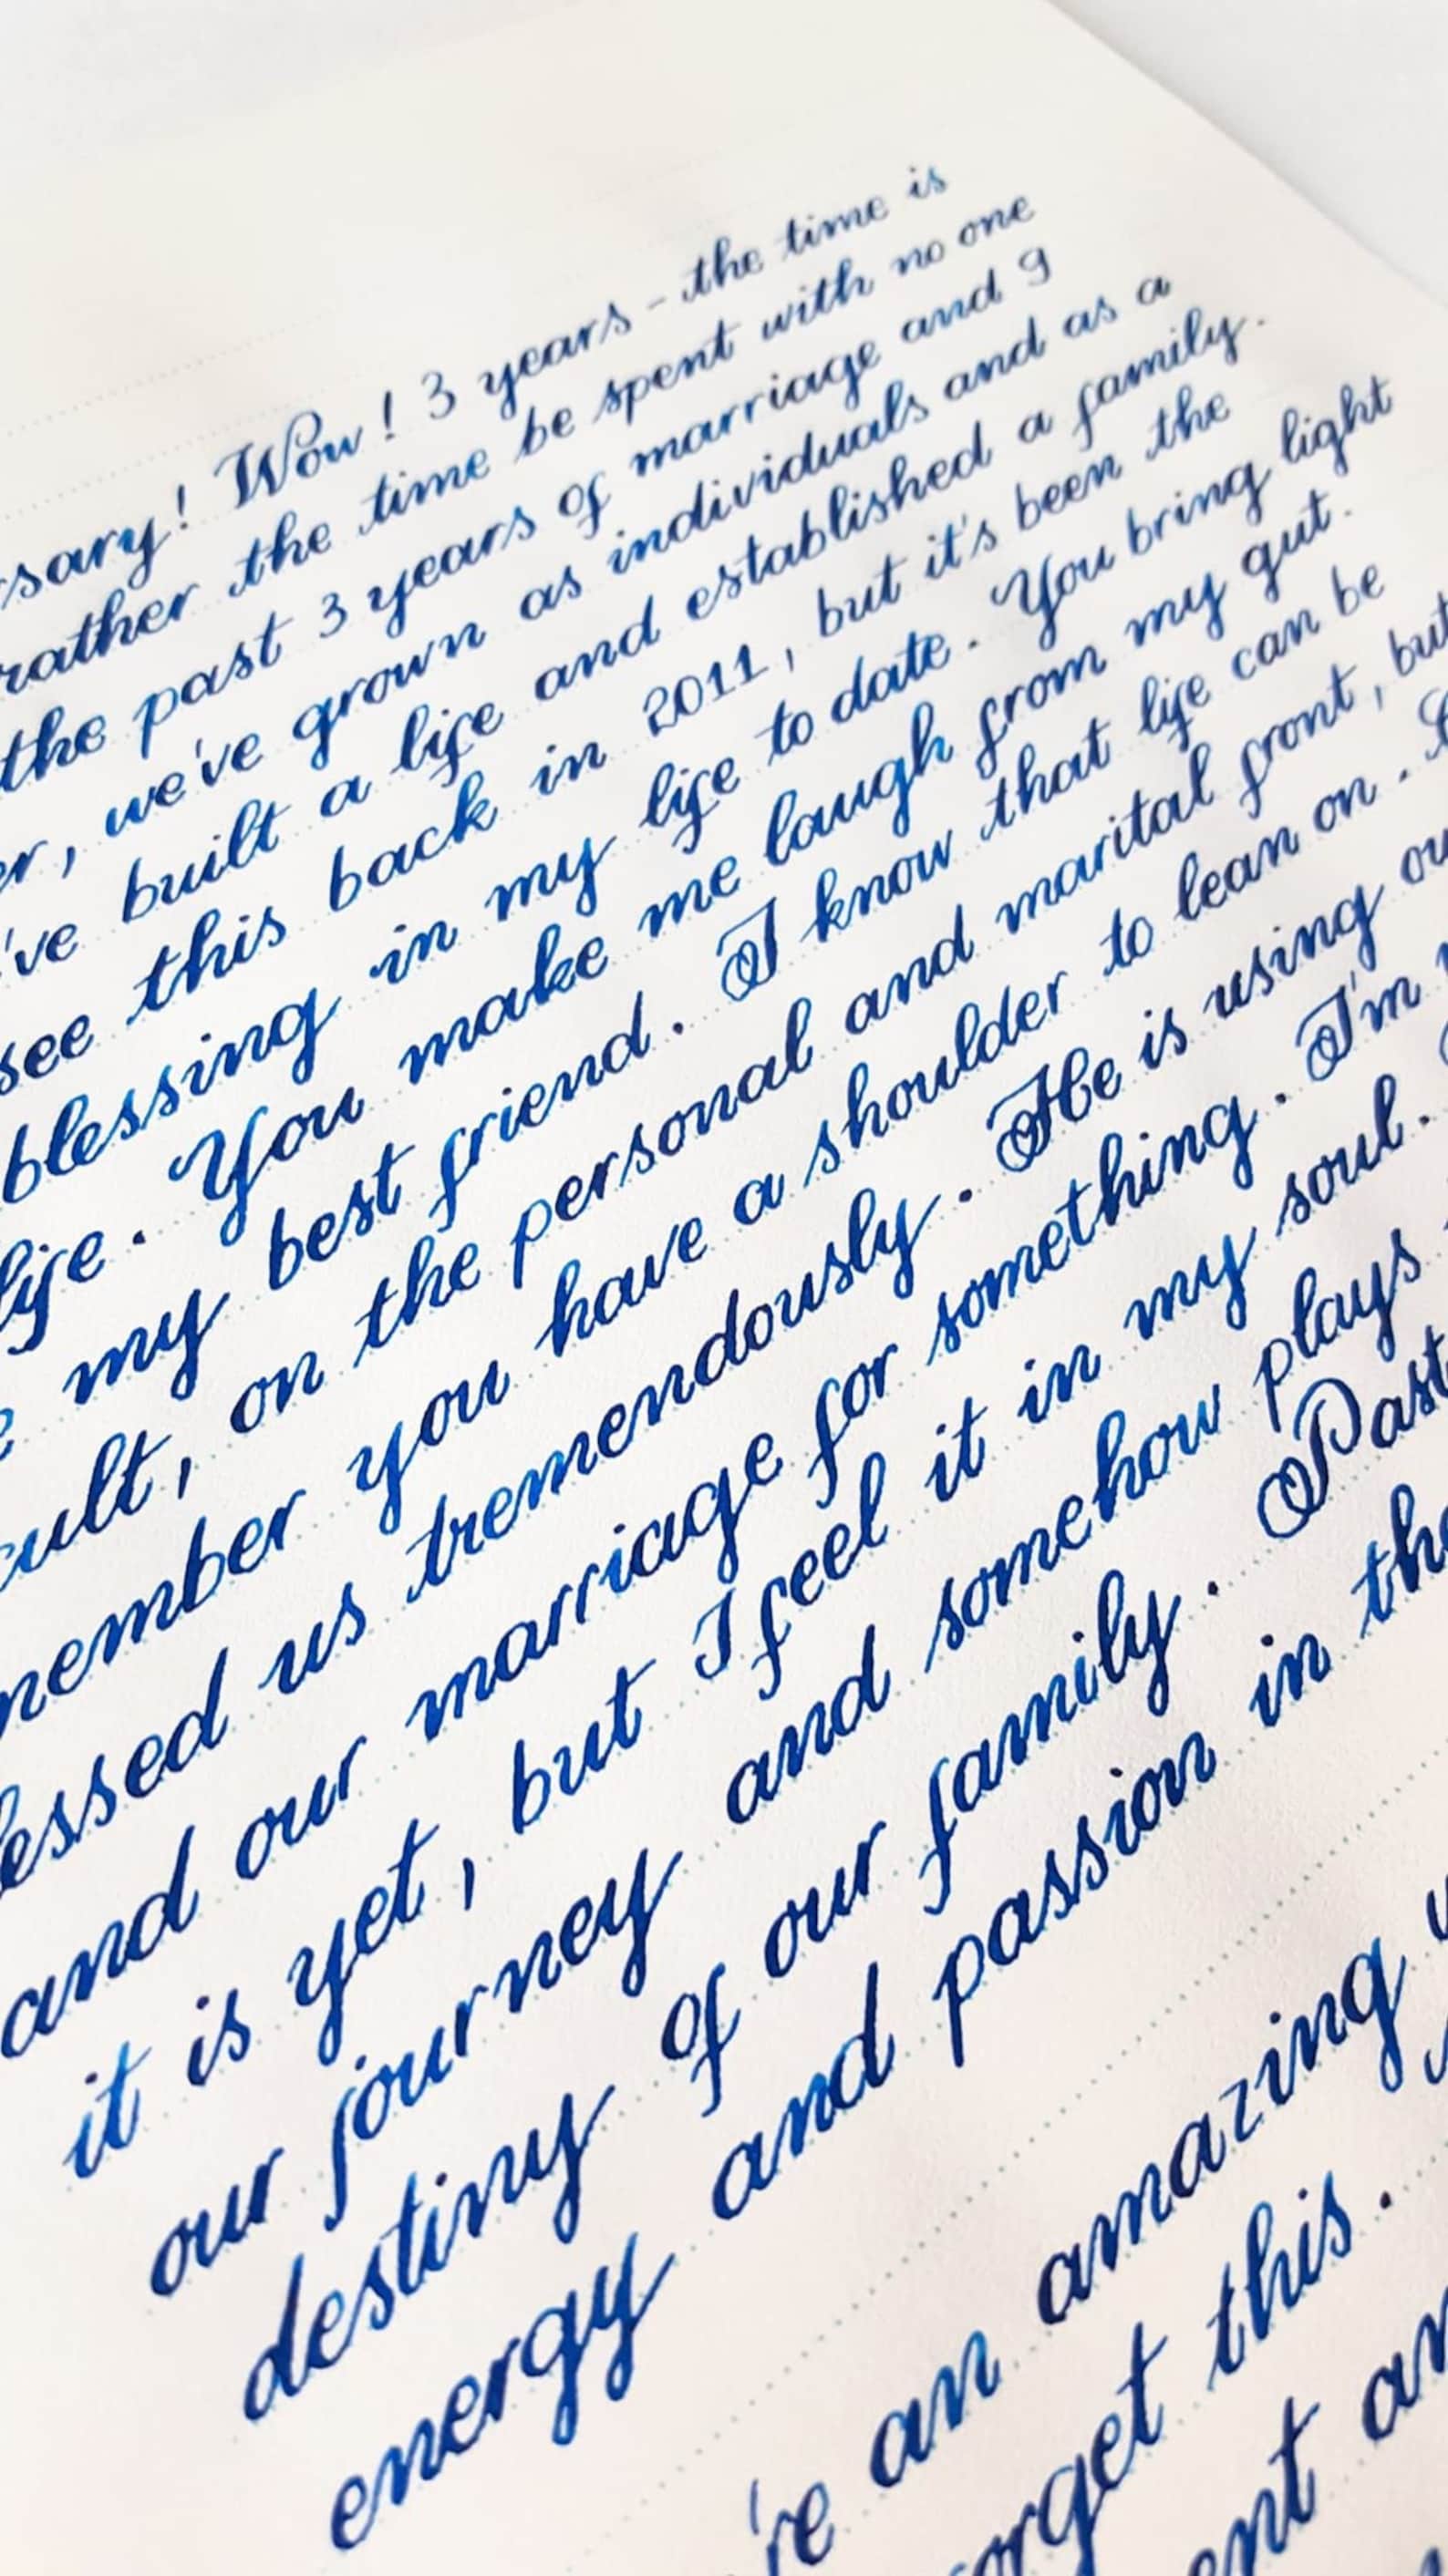 ! Wow! 3 years - the time is
rather the time be spent with no one
the past 3 years of marriage and 9
, we've grown as individuals and as a
've built a life and established a family.
see this back in 2011, but it's been the
blessing in my life to date. You bring light
life. You make me laugh from my gut.
my best friend. I know that life can be
, on the personal and marital front, but
you have a shoulder to lean on.
us tremendously. He is using
and our marriage for something. I'm
it is yet, but I feel it in my soul.
our journey and somehow plays
destiny of our family.
energy and passion in
're an amazing
this.